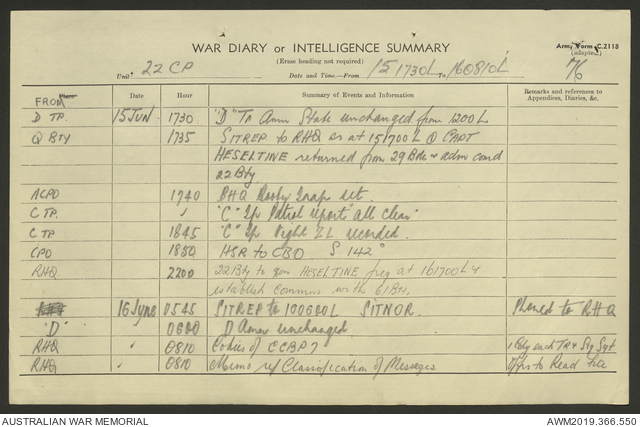 WAR DIARY or INTELLIGENCE SUMMARY
Army Form C.2118
(Erase heading not required)
(adapted)
Unit 22 CP
Date and Time—From 151730L To 160810L
FROM Date Hour Summary of Events and Information Remarks and references to Appendices, Diaries, &c.
D TP. 15 Jun 1730 "D" Tp Amn State unchanged from 1200 L
Q BTY 1735 SITREP to RHQ as at 151700 L @ CAPT
HESELTINE returned from 29 Bde & adm comd
22 Bty
ACPO 1740 BHQ set.
C TP. " "C" Tp Patrol report "all clear"
C TP 1845 "C" Tp Night ZL recorded.
CPO 1850 HSR to CBO S 142°
RHQ 2200 22 Bty to HESELTINE freq at 161700L &
establish comms with 61 Bty.
16 June 0545 SITREP to 100600L SITNOR. Phoned to RHQ
'D' 0600 D Amn unchanged
RHQ " 0810 Copies of CCBP 7 1 Copy each TP & Sig Sgt
RHQ " 0810 Memo re Classification of Messages Offrs to Read
AUSTRALIAN WAR MEMORIAL
AWM2019.366.550